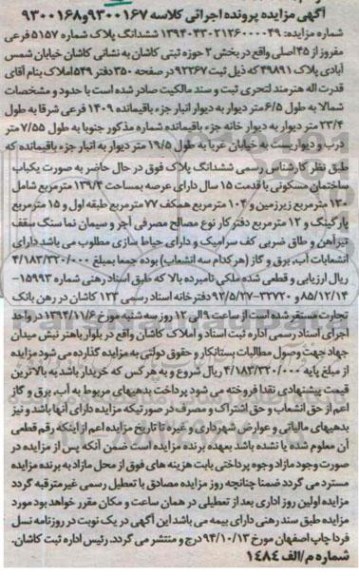 آگهی مزایده پرونده اجرائی کلاسه ۹۳۰۰۱۶۷و۹۳۰۰۱۶۸
شماره مزایده: ۱۳۹۴۰۴۳۰۲۱۲۶۰۰۰۰۴۹ ششدانگ پلاک شماره ۵۱۵۷ فرعی
مفروز از ۴۵ اصلی واقع در بخش ۲ حوزه ثبتی کاشان به نشانی کاشان خیابان شمس
آبادی پلاک ۴۹۸۹۱ که ذیل ثبت ۹۲۲۶۷ در صفحه ۳۵۰ دفتر ۵۴۹ املاک بنام آقای
قدرت اله هنرمند لتحری ثبت و سند مالکیت صادر شده است با حدود و مشخصات
شمالا به طول ۶/۵متر دیوار به دیوار انبار جزء باقیمانده ۱۴۰۹ فرعی شرقا به طول
۲۳/۴ متر دیوار به دیوار خانه جزء باقیمانده شماره مذکور جنوبا به طول ۷/۵۵ متر
درب و دیواریست به خیابان غربا به طول ۱۹/۵ متر دیوار به انبار جزء باقیمانده که
طبق نظر کارشناس رسمی ششدانگ پلاک فوق در حال حاضر به صورت یکباب
ساختمان مسکونی با قدمت ۱۵ سال دارای عرصه بمساحت ۱۳۹/۴ مترمربع شامل
۱۲۰ مترمربع زیرزمین و ۱۰۴ مترمربع همکف ۷۷ مترمربع طبقه اول و ۱۵ مترمربع
پارکینگ و ۱۲ مترمربع دفتر کار نوع مصالح مصرفی آجر و سیمان نما سنگ سقف
تیرآهن و طاق ضربی کف سرامیک و دارای حیاط سازی مطلوب می باشد دارای
انشعابات آب، برق و گاز (هر کدام سه انشعاب) بوده جمعا بمبلغ ۴/۱۸۳/۳۲۰/۰۰۰
ریال ارزیابی و قطعی شده ملکی نامبرده بالا که طبق اسناد رهنی شماره ۱۵۹۹۳-
۸۵/۱۲/۱۴ و ۳۳۷۲۰-۹۲/۵/۲۷ دفترخانه اسناد رسمی ۱۲۳ کاشان در رهن بانک
تجارت مستقر شده است از ساعت ۹ الی ۱۲ روز سه شنبه مورخ ۱۳۹۴/۱۱/۶ در واحد
اجرای اسناد رسمی اداره ثبت اسناد و املاک کاشان واقع در بلوار باهنر نبش میدان
جهاد جهت وصول مطالبات بستانکار و حقوق دولتی به مزایده گذارده می شود مزایده
از مبلغ پایه ۴/۱۸۳/۳۲۰/۰۰۰ ریال شروع و به هر کس که خریدار باشد به بالاترین
قیمت پیشنهادی نقدا فروخته می شود پرداخت بدهیهای مربوط به آب، برق و گاز
اعم از حق انشعاب و حق اشتراک و مصرف در صورتیکه مزایده دارای آنها باشد و نیز
بدهیهای مالیاتی و عوارض شهرداری و غیره تا تاریخ مزایده اعم از اینکه رقم قطعی
آن معلوم شده یا نشده باشد بعهده برنده مزایده است ضمن آنکه پس از مزایده در
صورت وجود مازاد وجوه پرداختی بابت هزینه های فوق از محل مازاد به برنده مزایده
مسترد می گردد ضمنا چنانچه روز مزایده مصادف با تعطیل رسمی غیر مترقبه گردد
مزایده اولین روز اداری بعد از تعطیلی در همان ساعت و مکان مقرر خواهد بود مورد
مزایده طبق سند رهنی دارای بیمه می باشد این آگهی در یک نوبت در روزنامه نسل
فردا چاپ اصفهان مورخ ۹۴/۱۰/۱۳ درج و منتشر می گردد. رئیس اداره ثبت کاشان.
شماره م/الف ۱۴۸۴